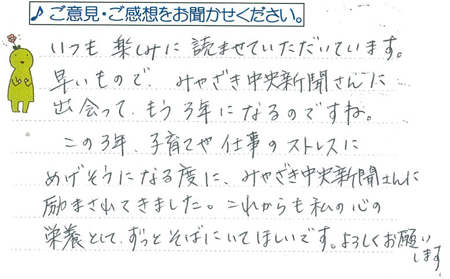 ♪ご意見・ご感想をお聞かせください。
いつも楽しみに読ませていただいています。
早いもので、みやざき中央新聞さんに
出会って、もう3年になるのですね。
この3年、子育てや仕事のストレスに
めげそうになる度に、みやざき中央新聞さんに
励まされてきました。これからも私の心の
栄養として、ずっとそばにいてほしいです。よろしくお願い
します